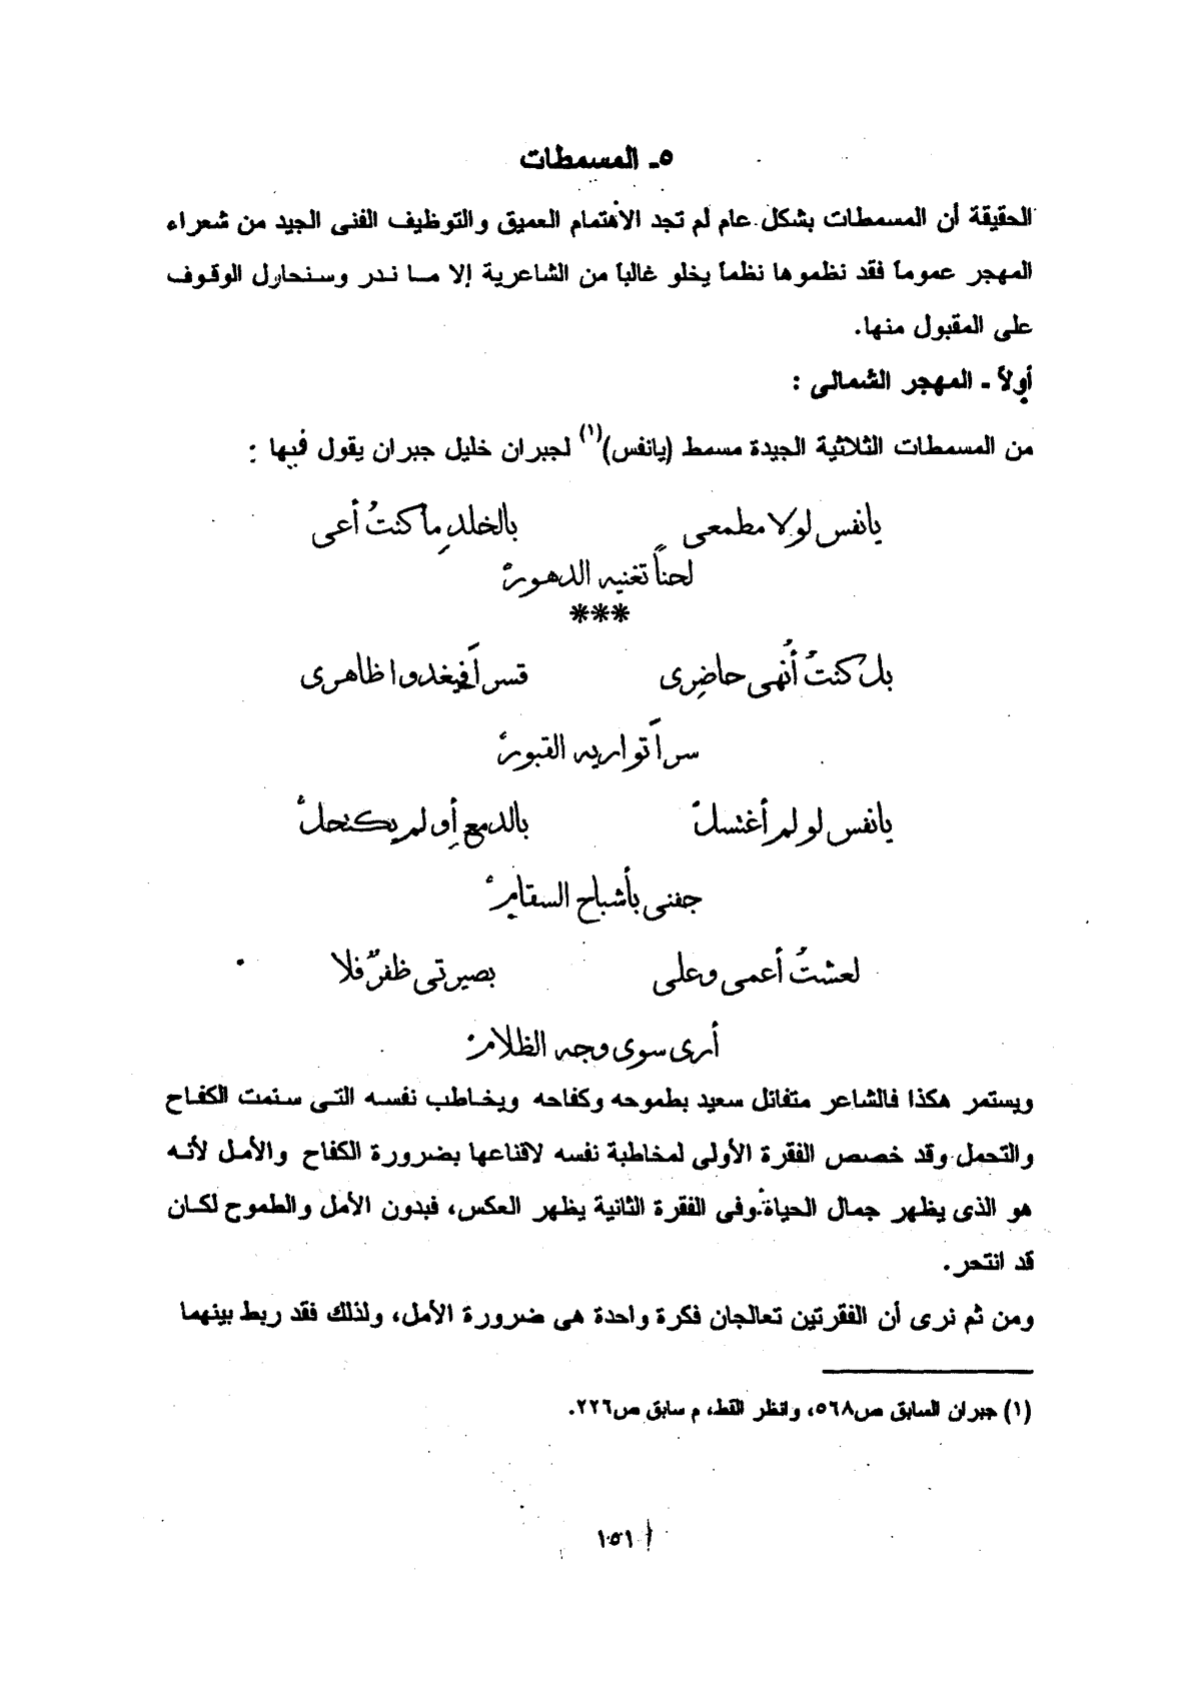 ٥ـ المسمطات
الحقيقة أن المسمطات بشكل عام لم تجد الأهتمام العميق والتوظيف الفنى الجيد من شعراء
المهجر عموماً فقد نظموها نظماً يخلو غالباً من الشاعرية إلا ما ندر وسنحاول الوقوف
على المقبول منها.
أولاً ـ المهجر الشمالى :
من المسمطات الثلاثية الجيدة مسمط (يانفس)(١) لجبران خليل جبران يقول فيها :
يانفس لولا مطمعى بالخلدِ ما كنتُ أعى
لحناً تغنيه الدهورْ
***
بل كنتُ أُنهى حاضِرى قسراً فيغدوا ظاهرى
سراً تواريه القبورْ
يانفس لو لم أغتسلْ بالدمع أو لم يكتحلْ
جفنى بأشباح السقامْ
لعشتُ أعمى وعلى بصيرتى ظفرٌ فلا
أرى سوى وجه الظلامْ
ويستمر هكذا فالشاعر متفائل سعيد بطموحه وكفاحه ويخاطب نفسه التى سئمت الكفاح
والتحمل وقد خصص الفقرة الأولى لمخاطبة نفسه لاقناعها بضرورة الكفاح والأمل لأنه
هو الذى يظهر جمال الحياة.وفى الفقرة الثانية يظهر العكس، فبدون الأمل والطموح لكان
قد انتحر.
ومن ثم نرى أن الفقرتين تعالجان فكرة واحدة هى ضرورة الأمل، ولذلك فقد ربط بينهما
(١) جبران السابق ص٥٦٨، وانظر القط، م سابق ص٢٢٦.
١٥١